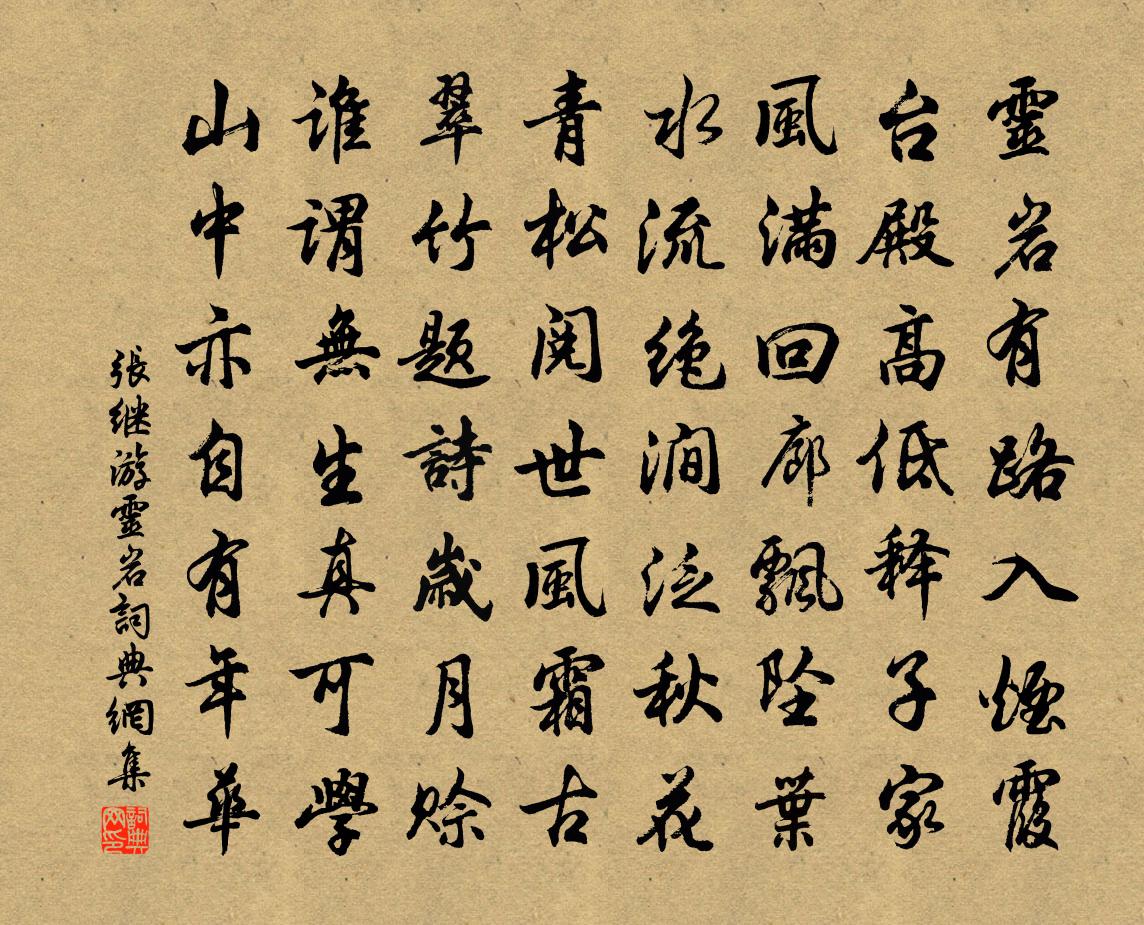 靈岩有路入煙霞
台殿高低释子家
風满回廊飄坠葉
水流绝涧泛秋花
青松阅世風霜古
翠竹题詩歲月賒
谁謂無生真可學
山中亦自有年華
張继游靈岩詞典網集
詞典网印